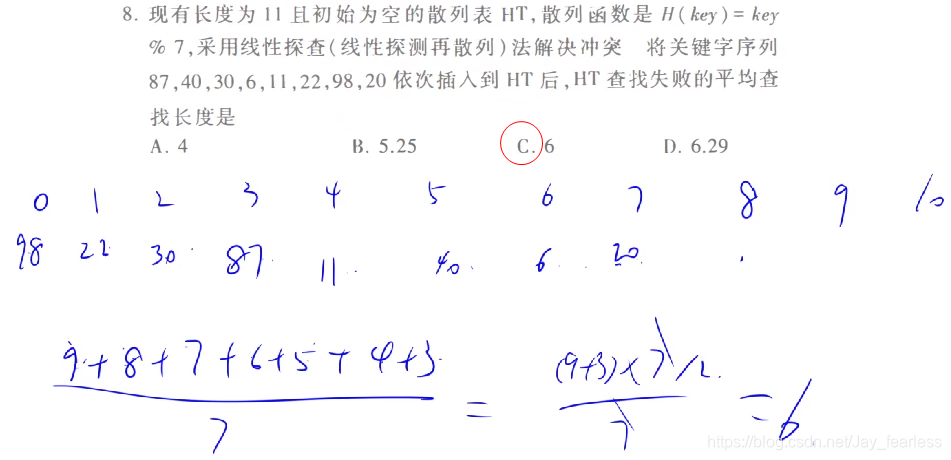 8. 现有长度为 11 且初始为空的散列表 HT,散列函数是 H(key)= key
% 7,采用线性探查(线性探测再散列)法解决冲突 将关键字序列
87,40,30,6,11,22,98,20 依次插入到 HT 后,HT 查找失败的平均查
找长度是
A. 4 B. 5.25 C. 6 D. 6.29
0 1 2 3 4 5 6 7 8 9 10
98 22 30 87 11 40 6 20
9+8+7+6+5+4+3 / 7 = (9+3)×7/2 / 7 = 6
https://blog.csdn.net/Jay_fearless